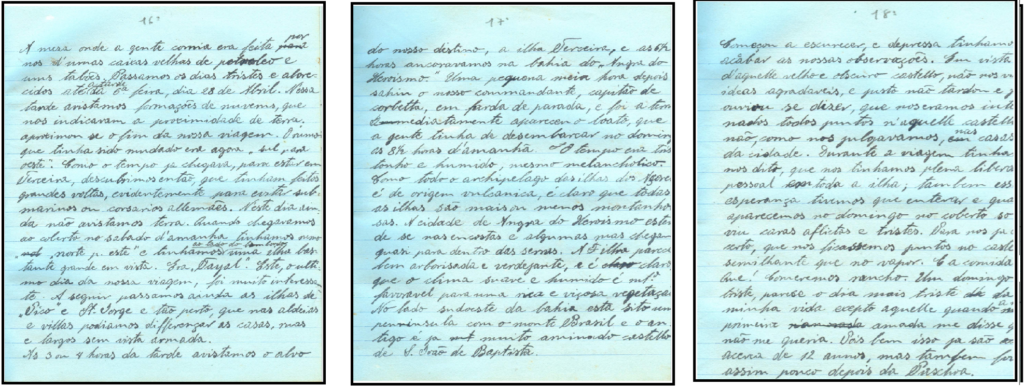 16ª
por
A mesa onde a gente comia era feita para
nos d'umas caixas velhas de petroleo e
uns taboes. Passamos os dias tristes e abor-
cidos até á sexta feira, dia 28 de Abril. Nessa
tarde avistamos formações de nuvens, que
nos indicaram a proximidade de terra,
aproximou se o fim da nossa viagem. O rumo
que tinha sido mudado era agora "sul,
oeste". Como o tempo ja chegava, para estar em
Terceira, descubrimos então, que tinham feitos
grandes voltas, evidentemente para evitar sub-
marinos ou corsarios allemães. Neste dia ain-
da não avistamos terra. Quando chegaramos
ao coberto no sabado d'amanha, tinhamos
ao lado do bombordo
norte e tinhamos uma ilha bas-
tante grande em vista. Era "Fayal". Este, o ulti-
mo dia da nossa viagem, foi muito interessan-
te. A seguir passamos ainda as ilhas de
"Pico" e St. Jorge e tão perto, que nas aldeias
e villas podiamos differençar as casas, ruas
e largos sem vista armada.
As 3 ou 4 horas da tarde avistamos o alvo
17ª
do nosso destino, a ilha Terceira, e as 6½
horas ancoravamos na bahia do "Angra do
Heroismo." Uma pequena meia hora depois
sahiu o nosso commandante, capitão de
corbetta, em farda de parada, e foi a terra
mediatamente apareceu o boato, que
a gente tinha de desembarcar no domingo
as 8½ horas d'amanha. O tempo era tris-
tonho e humido, mesmo melancholico.
Como todo o archipelago das ilhas dos Açores
é de origem vulcanica, é claro que todas
as ilhas são mais ou menos montanho-
sas. A cidade de Angra do Heroismo esten-
de se nas encostas e algumas ruas chegam
quasi para dentro das serras. A Ilha parece
bem arborisada e verdejante, e é claro
que o clima suave e humido é mt
favoravel para uma rica e viçosa vegetação.
No lado sudoeste da bahia esta sito um
penninsula com o monte Brasil e o an-
tigo e ja muito arruinado castello
de S. João de Baptista.
18ª
Começou a escurecer, e depressa tinhamos
acabar as nossas observações. Em vista
d'aquelle velho e obscuro castello, não nos
ideas agradaveis, e justo não tardou e
ouviou se dizer, que nos eramos inter
nados todos juntos n'aquelle castello
não, como nos julgavamos, nas casas
da cidade. Durante a viagem tinham
nos dito, que nos tinhamos plena liber
pessoal em toda a ilha; tambem es
esperança tivemos que enterar e qua
aparecemos no domingo no coberto so
viu caras aflictas e tristes. Para nos
certo, que nos ficassemos juntos no caste
semilhante que no vapor. E a comida
que! Comeremos rancho. Um domingo
triste, parece o dia mais triste da
minha vida excepto aquelle quando
primeira amada me disse
não me queria. Pois bem isso ja são
acerca de 12 annos, mas tambem foi
assim pouco depois da Paschoa.